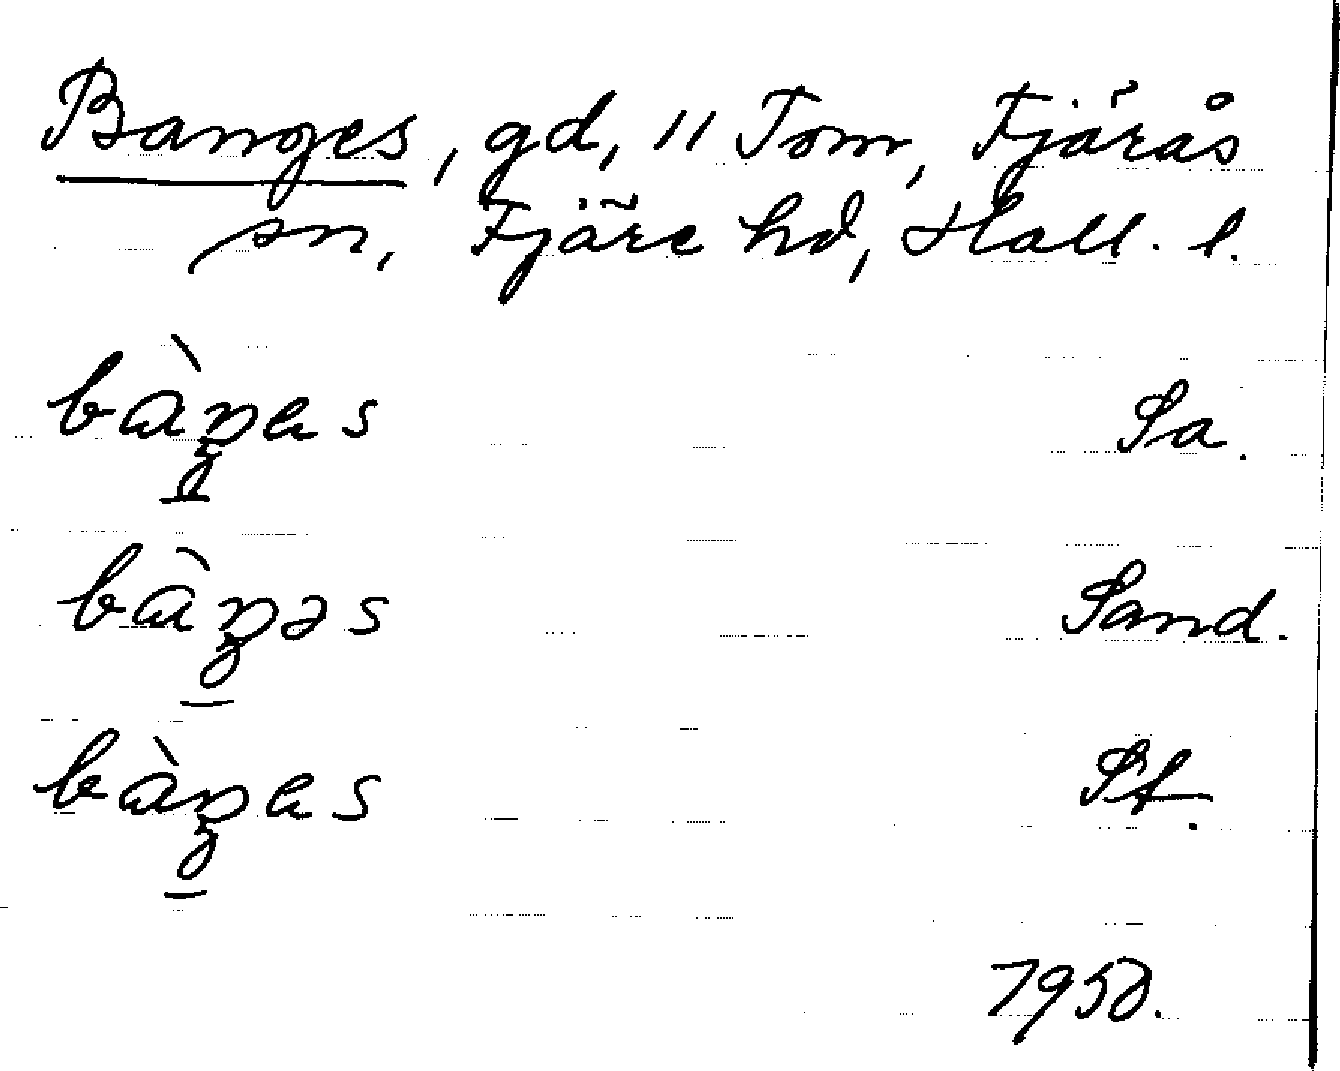 Banges, gd, 11 Tom, Fjärås
sn, Fjäre hd, Hall. l.
bàŋas Sa.
bàŋəs Sand.
bàŋas St.
1950.